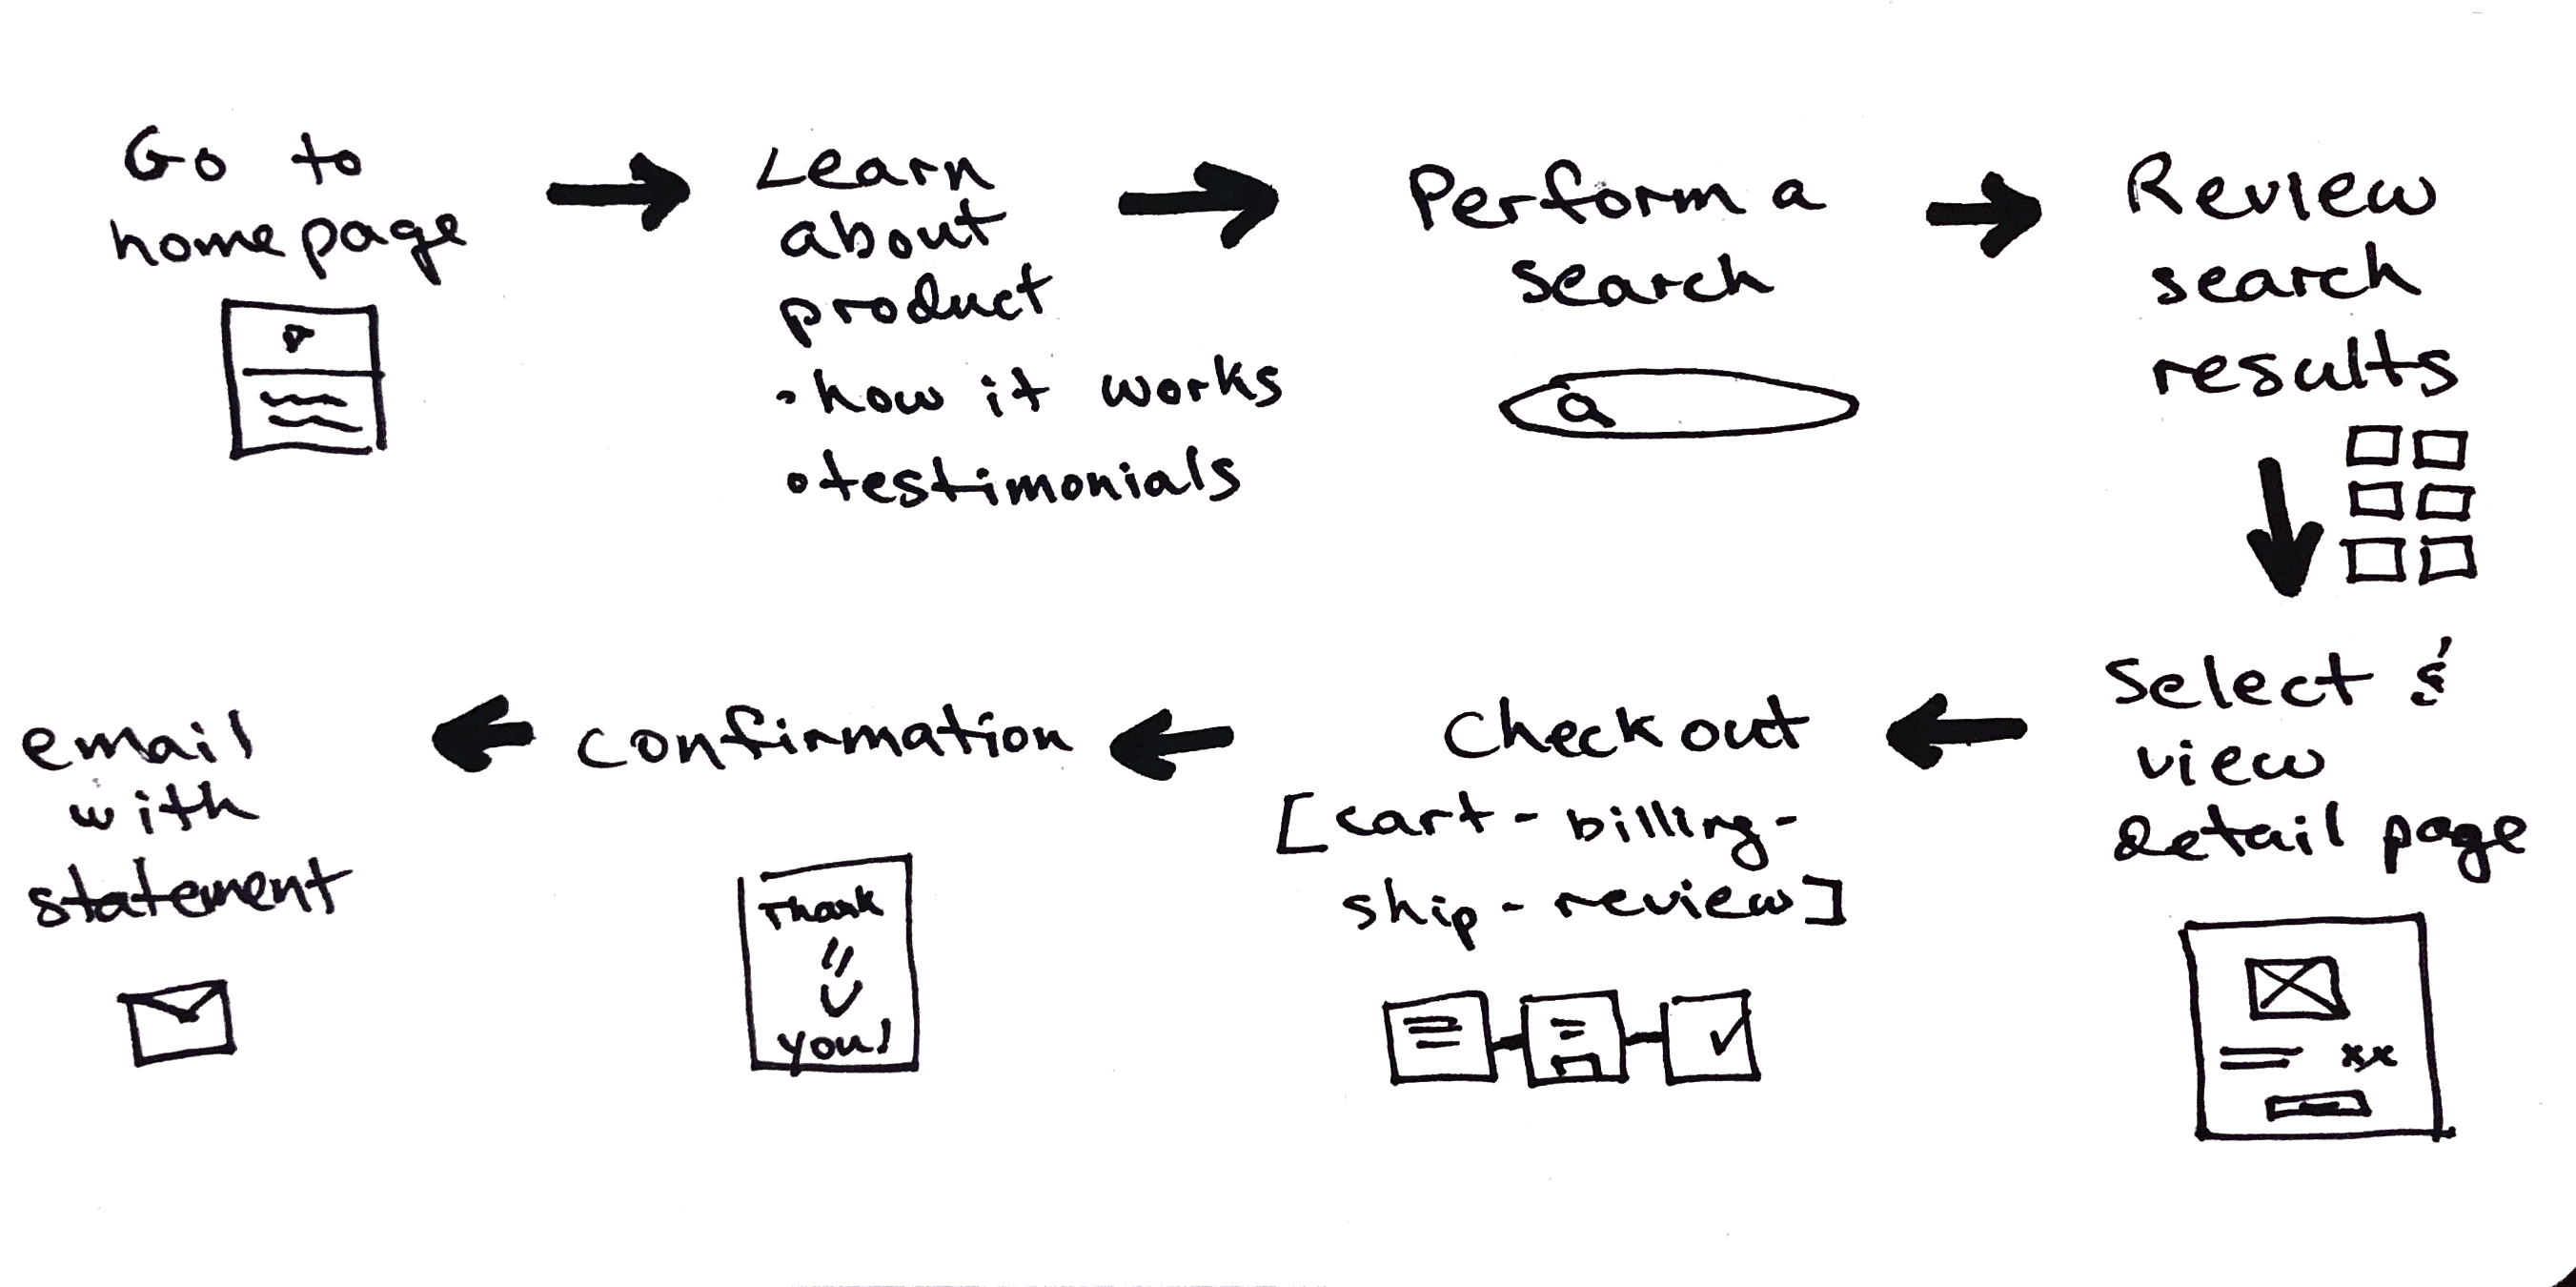 Go to
homepage
Learn
about
product
• how it works
• testimonials
Perform a
search
Review
search
results
Select &
view
detail page
xx
Checkout
[cart - billing -
ship - review]
confirmation
Thank
you!
email
with
statement